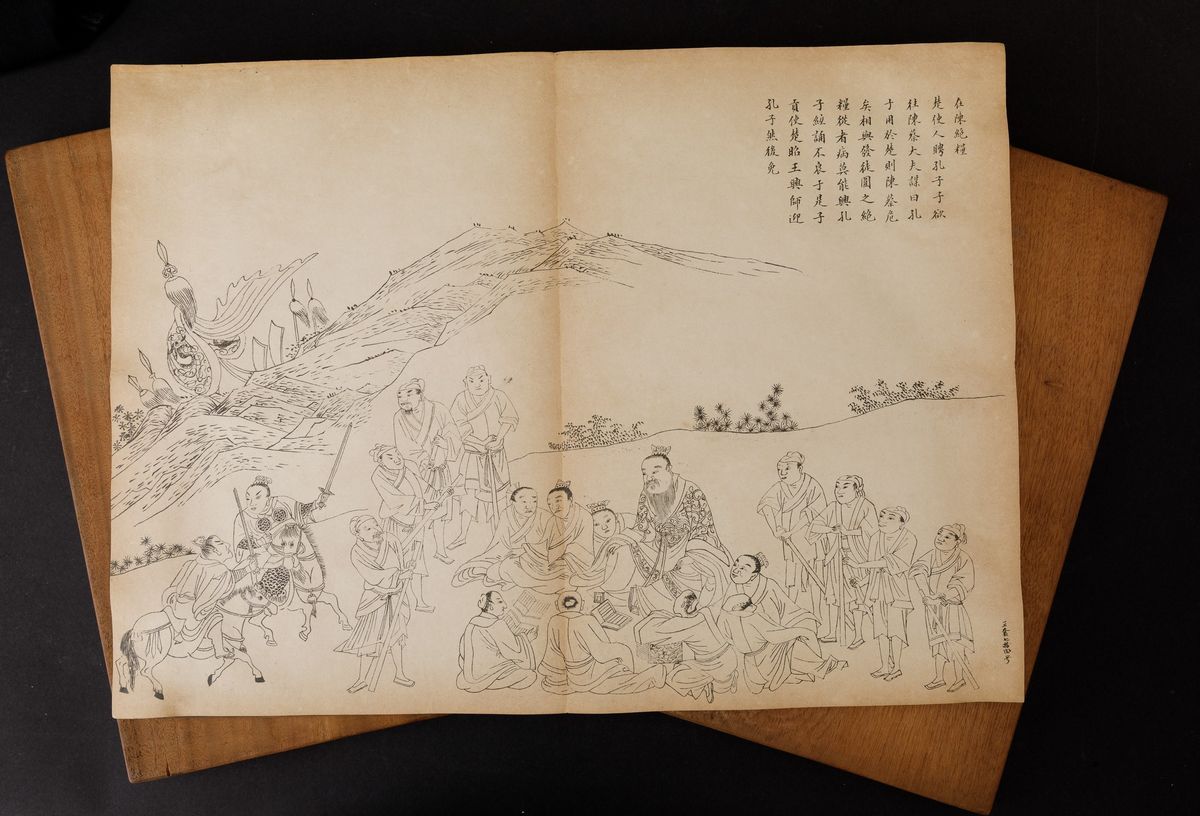 在陳絕糧
楚使人聘孔子子欲
往陳蔡大夫謀曰孔
子用於楚則陳蔡危
矣相與發徒圍之絕
糧從者病莫能興孔
子絃誦不衰于是子
貢使楚昭王興師迎
孔子然後免